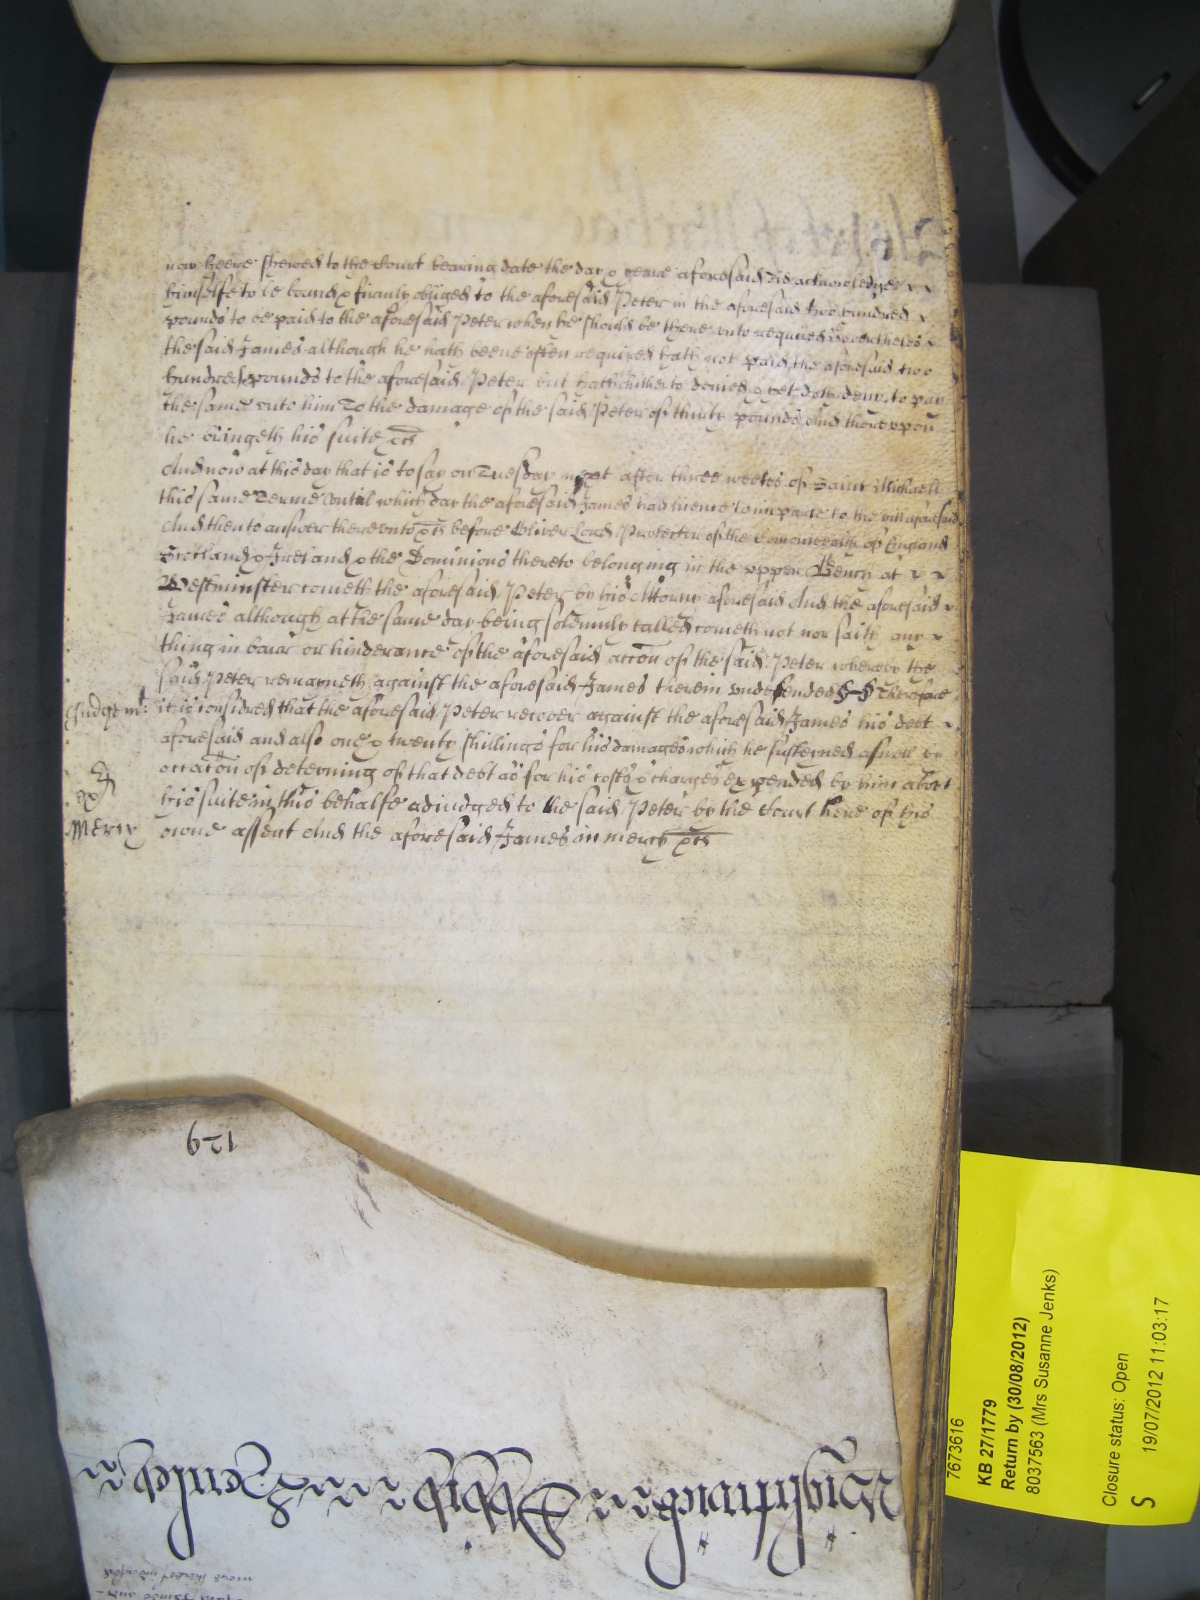 now heere shewed to the Court bearing date the day & yeare aforesaid did acknowledge
himselfe to be bound & firmly obliged to the aforesaid Peter in the aforesaid two hundred
pounds to be paid to the aforesaid Peter when he should be there unto required Nevertheles
the said James although he hath beene often required hath not paid the aforesaid two
hundred pounds to the aforesaid Peter but hath hitherto denied & yet doth deny to pay
the same unto him To the damage of the said Peter of thirty pounds And thereuppon
he bringeth his suite &c
And now at this day that is to say on Tuesday next after three weekes of Saint Michaell
this same Terme untill which day the aforesaid James had licence to imparle to the bill aforesaid
And then to answer thereunto &c before Oliver Lord Protector of the Comonwealth of England
Scotland & Ireland & the Dominions thereto belonging in the upper Bench at
Westminster cometh the aforesaid Peter by his Attorny aforesaid And the aforesaid
James although at the same day being solemnly called cometh not nor saith any
thing in barr or hinderance of the aforesaid accon of the said Peter whereby the
said Peter remayneth against the aforesaid James therein undefended Therefore
Judgemt: it is considred that the aforesaid Peter recover against the aforesaid James his debt
aforesaid and also one & twenty shillings for his damages which he susteyned aswell by
occacon of deteyning of that debt as for his costs & charges expended by him about
his suite in this behalfe adiudged to the said Peter by the Court here of his
Mercy owne assent And the aforesaid James in mercy &c
129
7673616
KB 27/1779
Return by (30/08/2012)
8037563 (Mrs Susanne Jenks)
Closure status: Open
S
19/07/2012 11:03:17